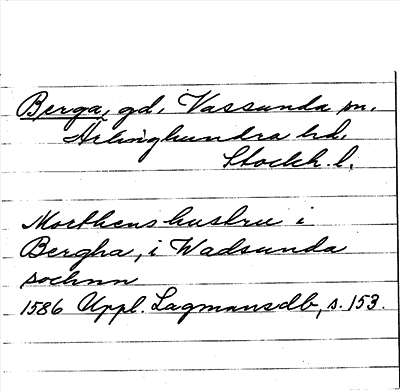 Berga, gd, Vassunda sn.
Ärlinghundra hd.
Stockh. l.
Morthens hustru i
Bergha, i Wadsunda
sochnn
1586 Uppl. Lagmansdb, s. 153.